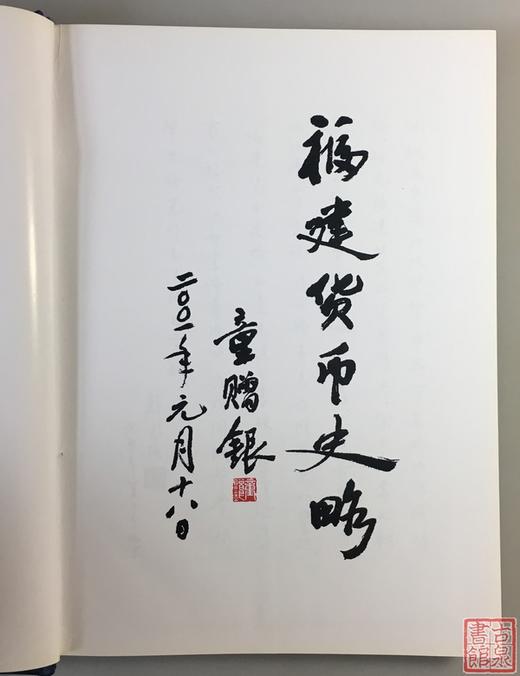 福建货币史略
童赠银
二〇〇一年元月十八日
古泉書館